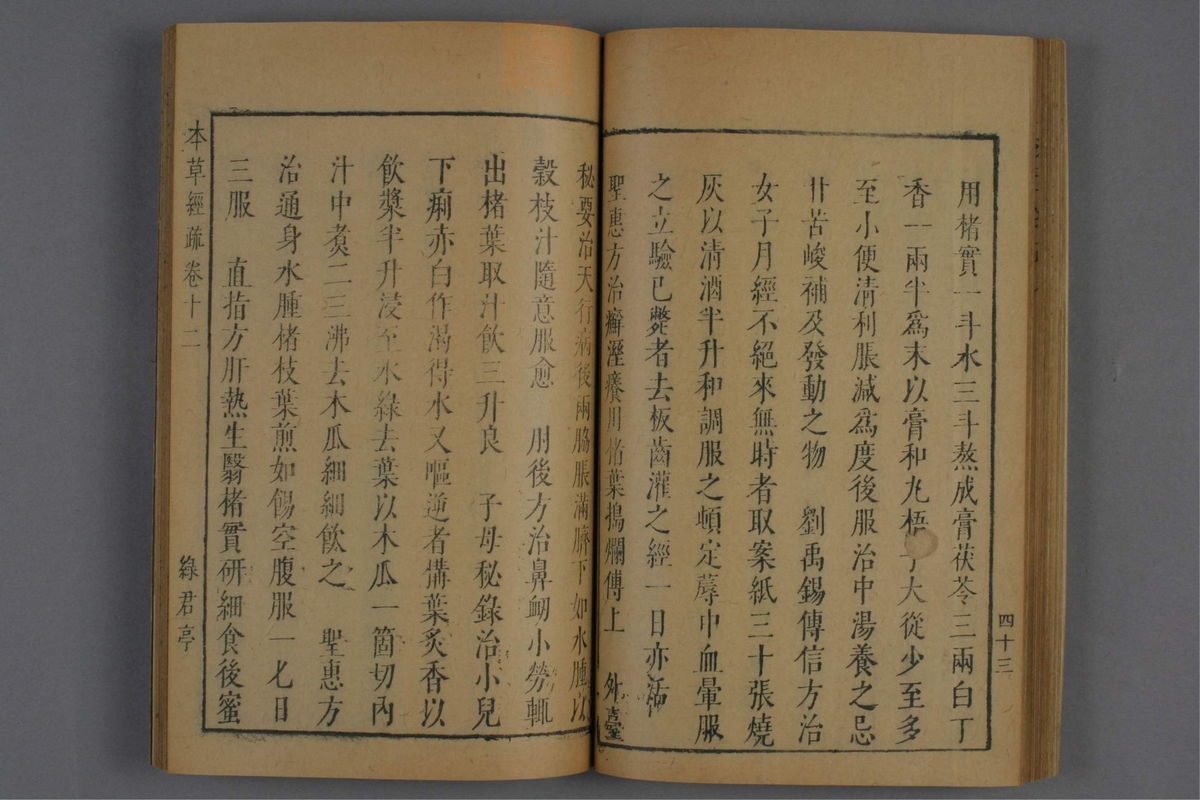 四十三
用楮實一斗水三斗熬成膏茯苓三兩白丁
香一兩半爲末以膏和丸梧子大從少至多
至小便清利脹減爲度後服治中湯養之忌
甘苦峻補及發動之物　劉禹錫傳信方治
女子月經不絕來無時者取案紙三十張燒
灰以清酒半升和調服之頓定蓐中血暈服
之立驗已斃者去板齒灌之經一日亦活
聖惠方治癬溼癢用楮葉搗爛傅上　外臺
秘要治天行病後兩脇脹滿臍下如水腫以
穀枝汁隨意服愈　肘後方治鼻衂小勞輒
出楮葉取汁飲三升良　子母秘錄治小兒
下痢赤白作渴得水又嘔逆者構葉炙香以
飲漿半升浸至水綠去葉以木瓜一箇切內
汁中煮二三沸去木瓜細細飲之　聖惠方
治通身水腫楮枝葉煎如餳空腹服一匕日
三服　直指方肝熱生翳楮實研細食後蜜
本草經疏卷十二
綠君亭